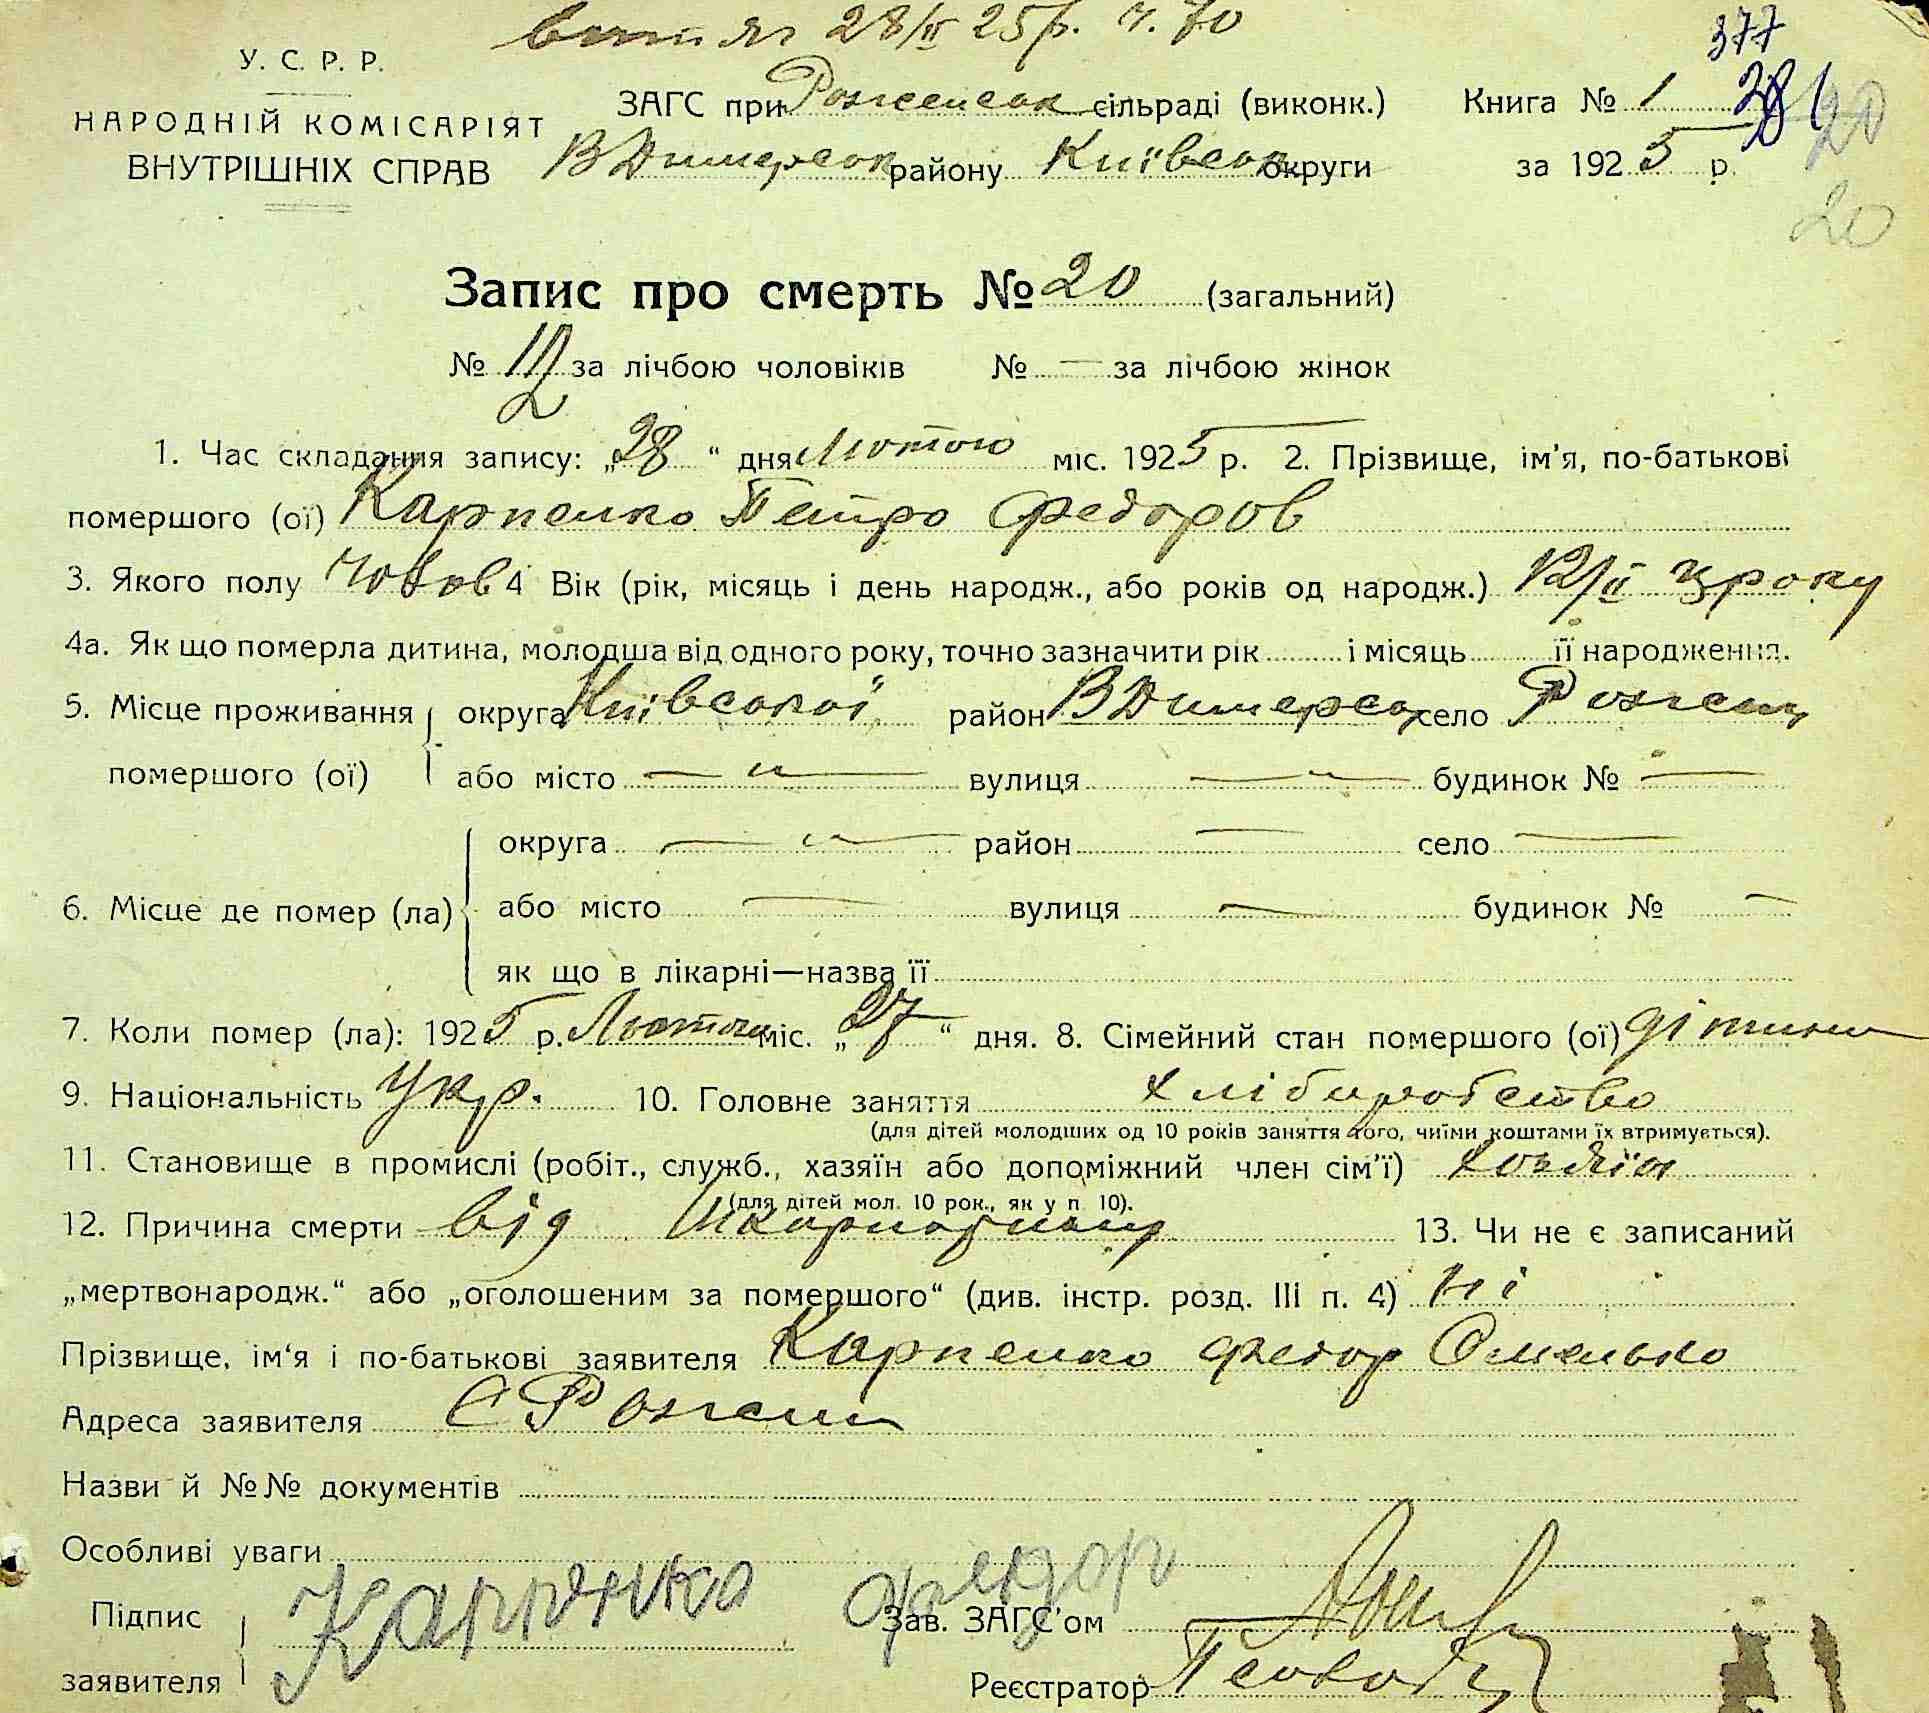 витяг 28/II 25р. ч. 70
377
У. С. Р. Р.
ЗАГС при Роженськ сільраді (виконк.) Книга № 1 281 20
НАРОДНІЙ КОМІСАРІЯТ
ВНУТРІШНІХ СПРАВ
В Димерськ району Київськ округи за 1925 р.
20
Запис про смерть № 20 (загальний)
№ 12 за лічбою чоловіків № — за лічбою жінок
1. Час складання запису: „28“ дня Лютого міс. 1925 р. 2. Прізвище, ім'я, по-батькові
помершого (ої) Карпенко Петро Федоров
3. Якого полу чолов 4 Вік (рік, місяць і день народж., або років од народж.) 12/II ц року
4а. Як що померла дитина, молодша від одного року, точно зазначити рік і місяць її народження.
5. Місце проживання округа Київської район В Димерськ село Рожени
помершого (ої) або місто — " — вулиця — " — будинок № —
округа — " — район — село —
6. Місце де помер (ла) або місто — вулиця — будинок № —
як що в лікарні—назва її
7. Коли помер (ла): 1925 р. Лютого міс. „27“ дня. 8. Сімейний стан помершого (ої) дітина
9. Національність Укр. 10. Головне заняття хліборобство
(для дітей молодших од 10 років заняття того, чиїми коштами їх втримується).
11. Становище в промислі (робіт., служб., хазяїн або допоміжний член сім'ї) хозяїн
(для дітей мол. 10 рок., як у п 10).
12. Причина смерти від 13. Чи не є записаний
„мертвонародж.“ або „оголошеним за помершого“ (див. інстр. розд. III п. 4) Ні
Прізвище, ім'я і по-батькові заявителя Карпенко Федор Омелько
Адреса заявителя С Рожени
Назви й №№ документів
Особливі уваги
Підпис Карпенко Федор Зав. ЗАГС'ом
заявителя Реєстратор